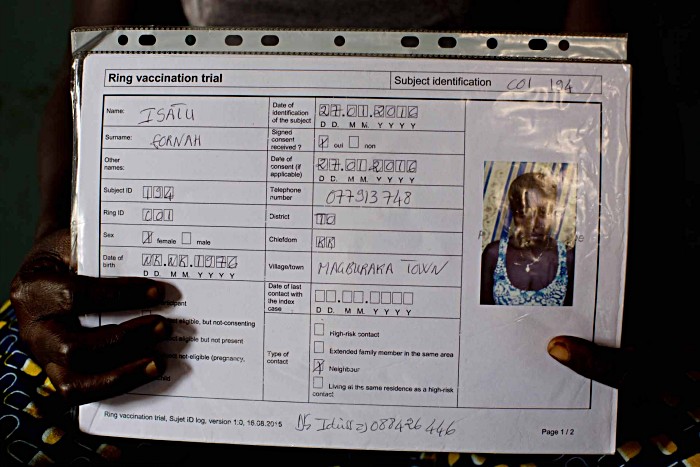 Ring vaccination trial
Subject identification COI 194
Name: ISATU
Surname: FORNAH
Other names:
Subject ID 194
Ring ID 001
Sex female male
Date of birth 1976
D D. M M. Y Y Y Y
Date of identification of the subject 27.01.2016
D D. M M. Y Y Y Y
Signed consent received ? oui non
Date of consent (if applicable) 27.01.2016
D D. M M. Y Y Y Y
Telephone number 077913748
District TO
Chiefdom KK
Village/town MAGBURAKA TOWN
Date of last contact with the index case
D D. M M. Y Y Y Y
Type of contact
High-risk contact
Extended family member in the same area
Neighbour
Living at the same residence as a high-risk contact
eligible, but-not-consenting
eligible but not present
not-eligible (pregnancy,
Ring vaccination trial, Sujet ID log, version 1.0, 16.08.2015
088426446
Page 1 / 2